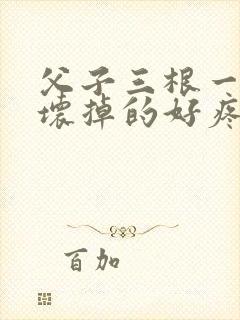 父子三根一
壞掉的好疼
百加